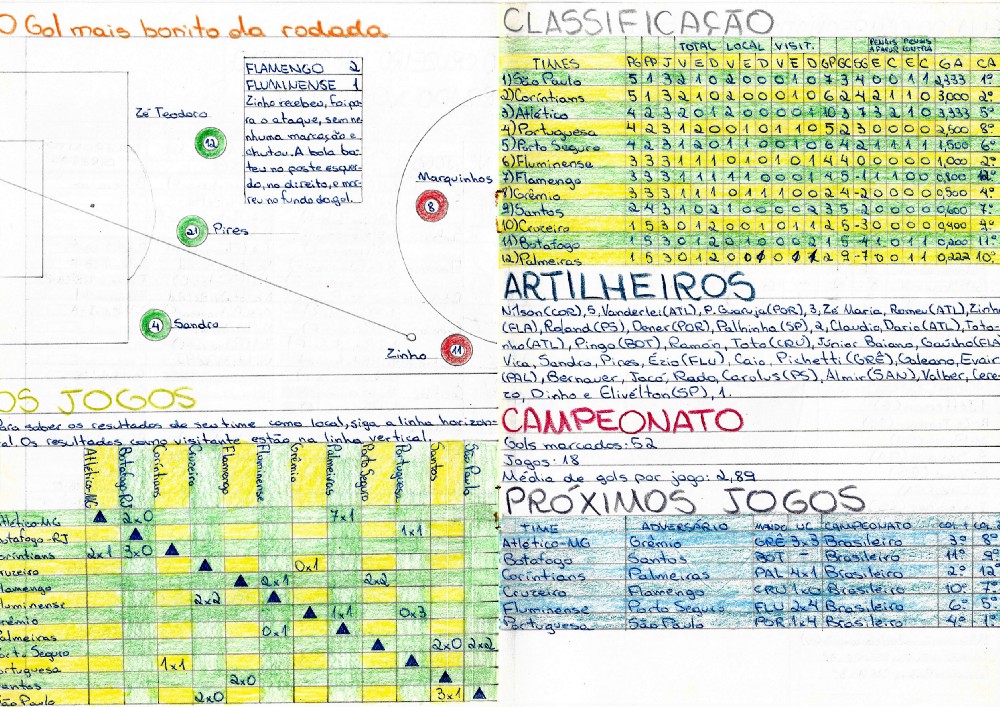 O Gol mais bonito da rodada
FLAMENGO 2
FLUMINENSE 1
Zinho recebeu, foi pa-
ra o ataque, sem ne-
nhuma marcação e
chutou. A bola ba-
teu no poste esquer-
do, no direito, e mor-
reu no fundo do gol.
Zé Teodoro
12
Marquinhos
8
21 Pires
4 Sandro
Zinho 11
OS JOGOS
Para saber os resultados do seu time como local, siga a linha horizon-
tal. Os resultados como visitante estão na linha vertical.
Atlético-MG Botafogo-RJ Coríntians Cruzeiro Flamengo Fluminense Grêmio Palmeiras Porto Seguro Portuguesa Santos São Paulo
Atlético-MG 2x0 7x1
Botafogo-RJ 1x1
Coríntians 2x1 3x0
Cruzeiro 0x1
Flamengo 2x1 2x2
Fluminense 2x2
Grêmio 1x1 0x3
Palmeiras 0x1
Porto Seguro 2x0 2x2
Portuguesa 1x1
Santos 2x0
São Paulo 2x0 3x1
CLASSIFICAÇÃO
TOTAL LOCAL VISIT.
TIMES PG PP J V E D V E D V E D GP GC SG E C E C GA CA
1) São Paulo 5 1 3 2 1 0 2 0 0 0 1 0 7 3 4 0 0 1 1 2,333 1º
2) Coríntians 5 1 3 2 1 0 2 0 0 0 1 0 6 2 4 2 1 1 0 3,000 2º
3) Atlético 4 2 3 2 0 1 2 0 0 0 0 1 10 3 7 3 2 1 0 3,333 5º
4) Portuguesa 4 2 3 1 2 0 0 1 0 1 1 0 5 2 3 0 0 0 0 2,500 8º
5) Porto Seguro 4 2 3 1 2 0 1 1 0 0 1 0 6 4 2 1 1 1 1 1,500 6º
6) Fluminense 3 3 3 1 1 1 0 1 0 1 0 1 4 4 0 0 0 0 0 1,000 2º
7) Flamengo 3 3 3 1 1 1 1 1 0 0 0 1 4 5 -1 1 1 0 0 0,800 12º
8) Grêmio 3 3 3 1 1 1 0 1 1 1 0 0 2 4 -2 0 0 0 0 0,500 4º
9) Santos 2 4 3 1 0 2 1 0 0 0 0 2 3 5 -2 0 0 0 0 0,600 7º
10) Cruzeiro 1 5 3 0 1 2 0 0 1 0 1 1 2 5 -3 0 0 0 0 0,400 9º
11) Botafogo 1 5 3 0 1 2 0 1 0 0 0 2 1 5 -4 1 0 1 1 0,200 11º
12) Palmeiras 1 5 3 0 1 2 0 0 2 9 -7 0 0 1 1 0,222 10º
ARTILHEIROS
Nilson(COR), 5, Vanderlei(ATL), P. Guaruja(POR), 3, Zé Maria, Romeu(ATL), Zinho
(FLA), Roland(PS), Dener(POR), Palhinha(SP), 2, Claudio, Dario(ATL), Toto-
nho(ATL), Pingo(BOT), Ramón, Toto(CRU), Júnior Baiano, Gaúcho(FLA)
Vica, Sandro, Pires, Ézio(FLU), Caio, Pichetti(GRÊ), Galeano, Evair
(PAL), Bernauer, Jacó, Rado, Carolus(PS), Almir(SAN), Valber, Cere-
zo, Dinho e Elivélton(SP), 1.
CAMPEONATO
Gols marcados: 52
Jogos: 18
Média de gols por jogo: 2,89
PRÓXIMOS JOGOS
TIME ADVERSÁRIO MANDO UC CAMPEONATO
Atlético-MG Grêmio GRÊ 3x3 Brasileiro 3º 8º
Botafogo Santos BOT - Brasileiro 11º 9º
Coríntians Palmeiras PAL 4x1 Brasileiro 2º 12º
Cruzeiro Flamengo CRU 1x0 Brasileiro 10º 7º
Fluminense Porto Seguro FLU 2x4 Brasileiro 6º 5º
Portuguesa São Paulo POR 1x4 Brasileiro 4º 1º